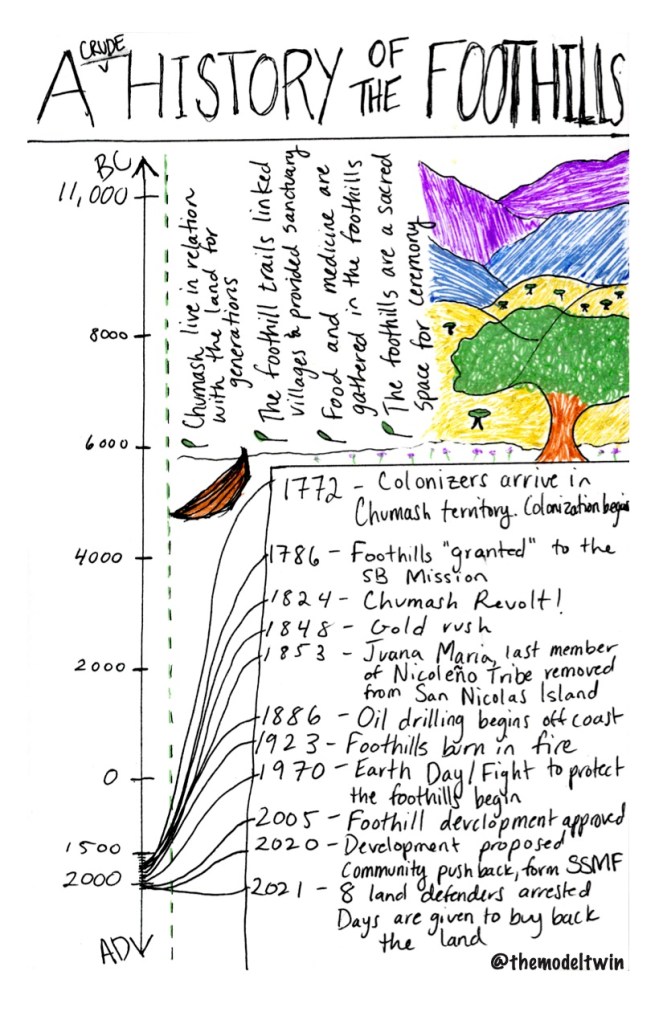 A CRUDE HISTORY OF THE FOOTHILLS
BC
11,000
8000
6000
4000
2000
0
1500
2000
ADV
Chumash live in relation
with the land for
generations
The foothill trails linked
villages & provided sanctuary
Food and medicine are
gathered in the foothills
The foothills are a sacred
space for ceremony
1772 - Colonizers arrive in
Chumash territory. Colonization begins
1786 - Foothills "granted" to the
SB Mission
1824 - Chumash Revolt!
1848 - Gold rush
1853 - Juana Maria, last member
of Nicoleño Tribe removed
from San Nicolas Island
1886 - Oil drilling begins off coast
1923 - Foothills burn in fire
1970 - Earth Day/Fight to protect
the foothills begin
2005 - Foothill development approved
2020 - Development proposed
Community push back, form SSMF
2021 - 8 land defenders arrested
Days are given to buy back
the land
@themodeltwin